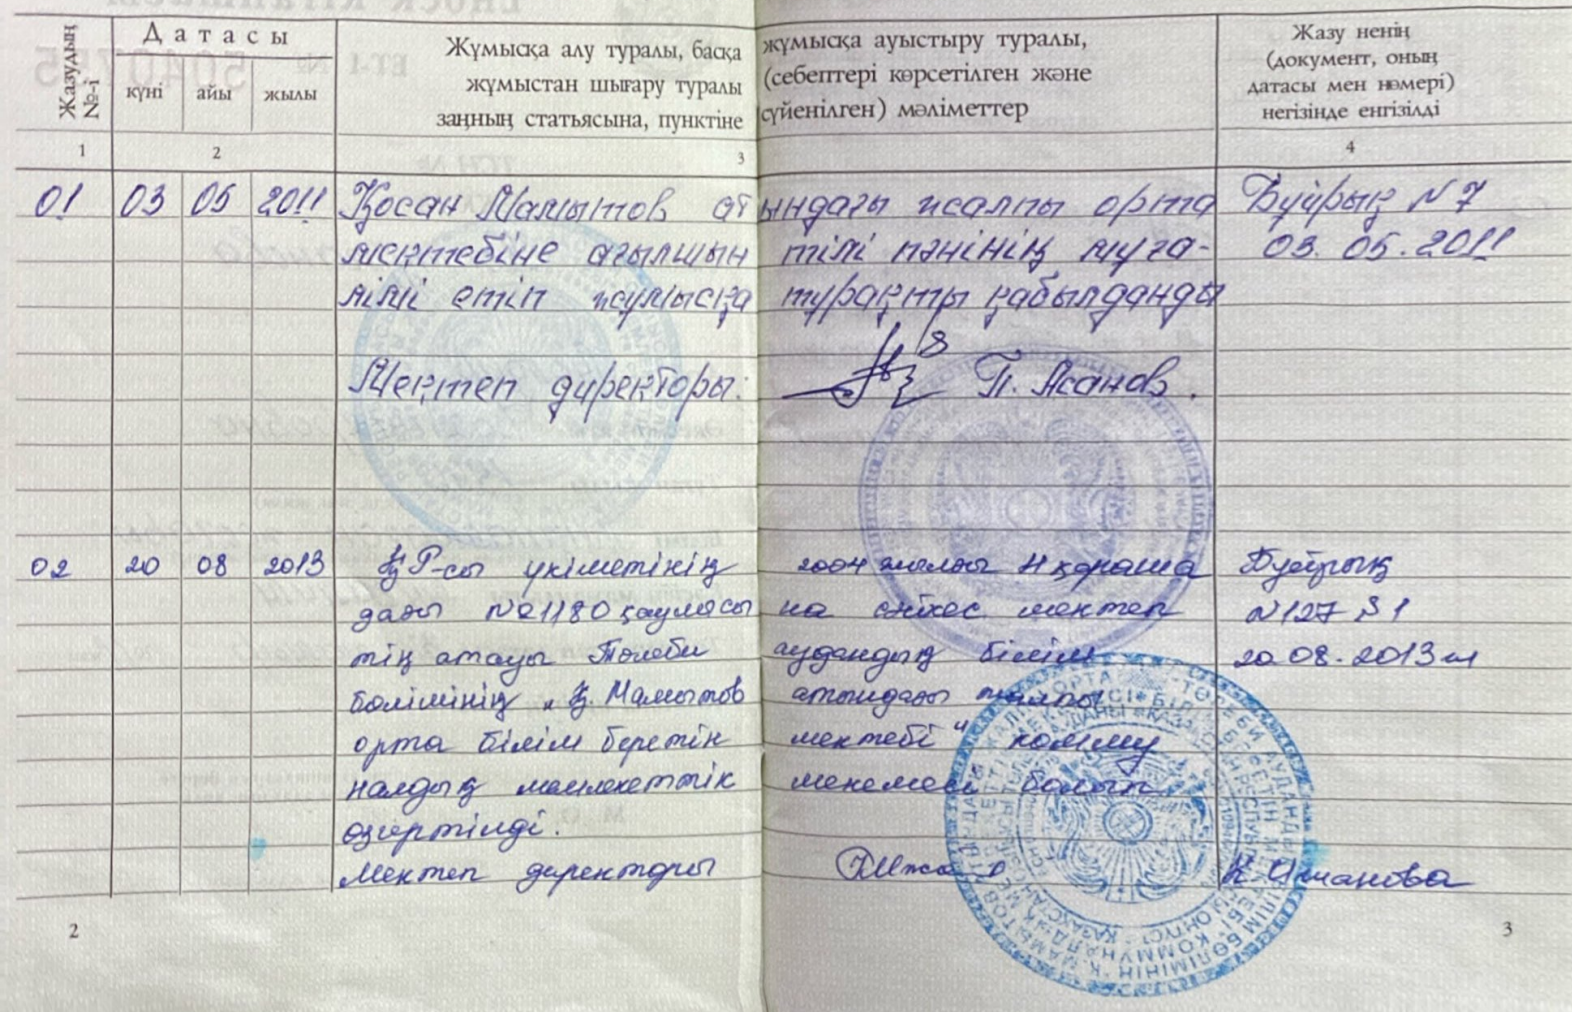 Жазудың №-і
Датасы
күні айы жылы
Жұмысқа алу туралы, басқа жұмысқа ауыстыру туралы,
жұмыстан шығару туралы (себептері көрсетілген және
заңның статьясына, пунктіне сүйенілген) мәліметтер
Жазу ненің
(документ, оның
датасы мен нөмері)
негізінде енгізілді
1 2 3 4
01 03 05 2011 Қосан Мамытов атындағы жалпы орта Бұйрық N 7
мектебіне ағылшын тілі пәнінің мұға- 03.05.2011
лімі етіп жұмысқа тұрақты қабылданды
Мектеп директоры: П. Асанов.
02 20 08 2013 ҚР-сы үкіметінің 2004 жылғы 4 қараша Бұйрық
дағы №1180 қаулысы на сәйкес мектеп N127 §1
тің атауы Төлеби аудандық білім 20.08.2013ж
бөлімінің "Қ. Мамытов атындағы жалпы
орта білім беретін мектебі" комму
налдық мемлекеттік мекемесі болып
өзгертілді.
Мектеп директоры К. Иманова
2 3